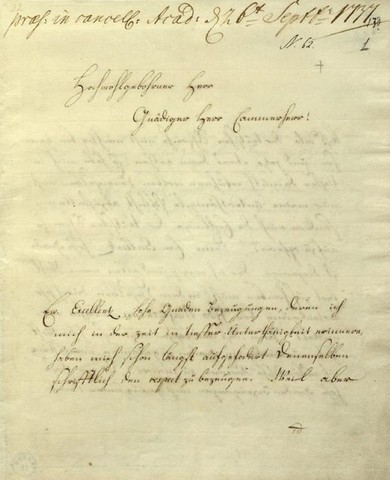 præs. in cancell. Acad. d. 26t Septbr 1737.
N. 62.
1
Hochwohlgebohrner Herr
Gnädiger Herr Cammerherr!
Ew. Excellenz hohe Gnaden bezeugungen, deren ich
mich in der Zeit in tieffer Unterthänigkeit erinnere,
haben mich schon längst aufgefordert Denenselben
schrifftlich den respect zu bezeugen. Weil aber